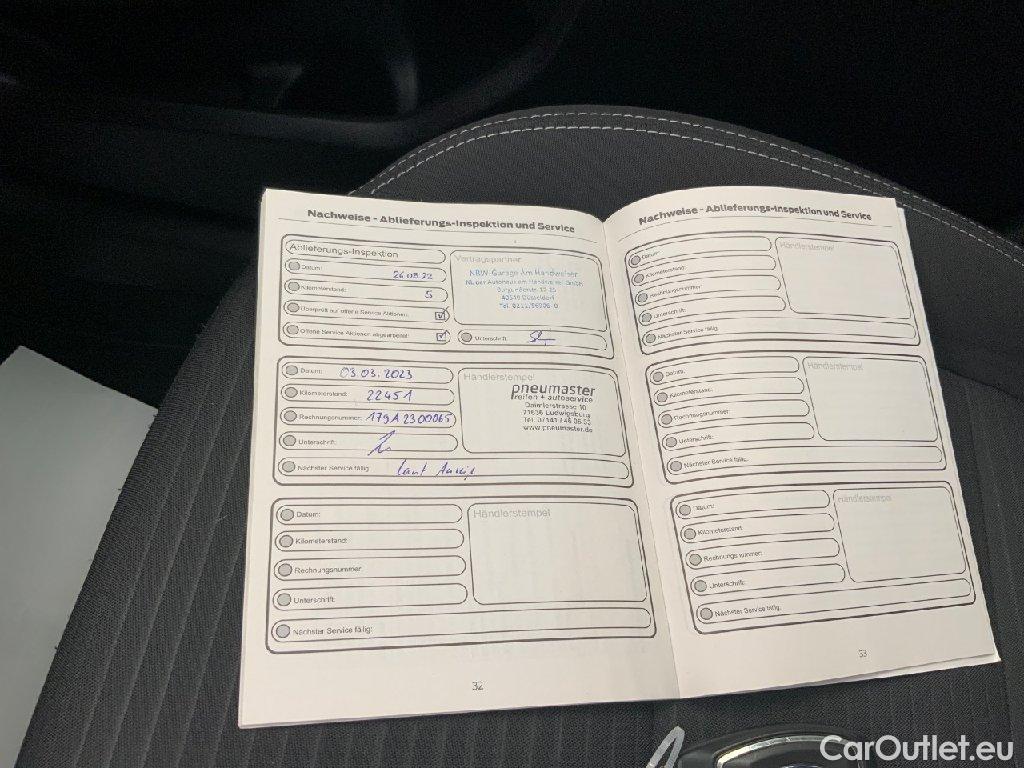 Nachweise - Ablieferungs-Inspektion und Service
Ablieferungs-Inspektion
Datum: 26.08.22
Kilometerstand: 5
Überprüft auf offene Service Aktionen:
Offene Service Aktionen abgearbeitet:
Vertragspartner
NRW-Garage Am Handweiser
40549 Düsseldorf
Unterschrift:
Datum: 03.03.2023
Kilometerstand: 22451
Rechnungsnummer: 179A2300065
Unterschrift:
Nächster Service fällig: laut Anzeige
Händlerstempel
pneumaster
reifen + autoservice
Daimlerstrasse 10
71636 Ludwigsburg
www.pneumaster.de
Datum:
Kilometerstand:
Rechnungsnummer:
Unterschrift:
Nächster Service fällig:
Händlerstempel
32
Nachweise - Ablieferungs-Inspektion und Service
Datum:
Kilometerstand:
Rechnungsnummer:
Unterschrift:
Nächster Service fällig:
Händlerstempel
Datum:
Kilometerstand:
Rechnungsnummer:
Unterschrift:
Nächster Service fällig:
Händlerstempel
Datum:
Kilometerstand:
Rechnungsnummer:
Unterschrift:
Nächster Service fällig:
Händlerstempel
33
CarOutlet.eu